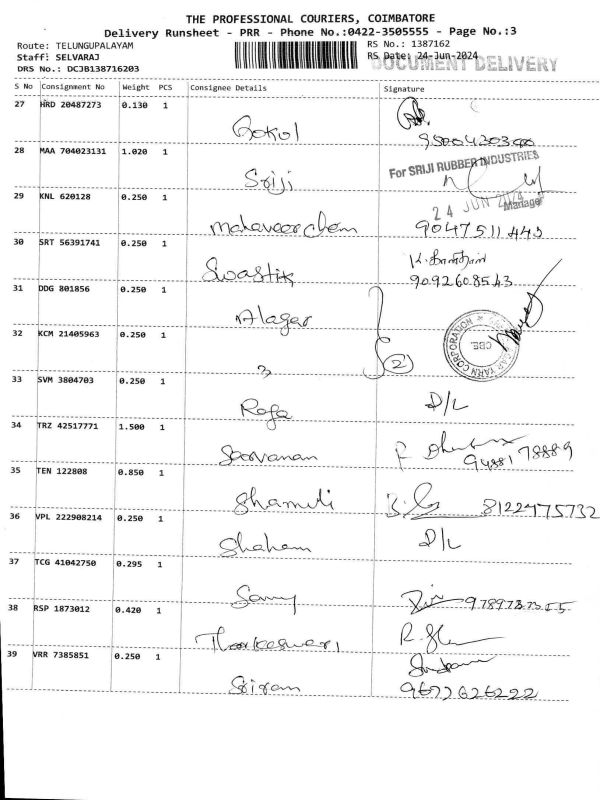 THE PROFESSIONAL COURIERS, COIMBATORE
Delivery Runsheet - PRR - Phone No.:0422-3505555 - Page No.:3
Route: TELUNGUPALAYAM RS No.: 1387162
Staff: SELVARAJ RS Date: 24-Jun-2024
DOCUMENT DELIVERY
DRS No.: DCJB138716203
S No Consignment No Weight PCS Consignee Details Signature
27 HRD 20487273 0.130 1
Gokul
28 MAA 704023131 1.020 1
Sriji For SRIJI RUBBER INDUSTRIES
24 JUN 2024 Manager
29 KNL 620128 0.250 1
Mahaveer chem 9047511443
30 SRT 56391741 0.250 1
Swastik 9092608543
31 DDG 801856 0.250 1
Alagar
32 KCM 21405963 0.250 1
2
33 SVM 3804703 0.250 1
Raja D/L
34 TRZ 42517771 1.500 1
Saravanan 9488178889
35 TEN 122808 0.850 1
Shamili 8122475732
36 VPL 222908214 0.250 1
Shaham D/L
37 TCG 41042750 0.295 1
Samy
38 RSP 1873012 0.420 1
Tharkeswari
39 VRR 7385851 0.250 1
Sriram 9677626222